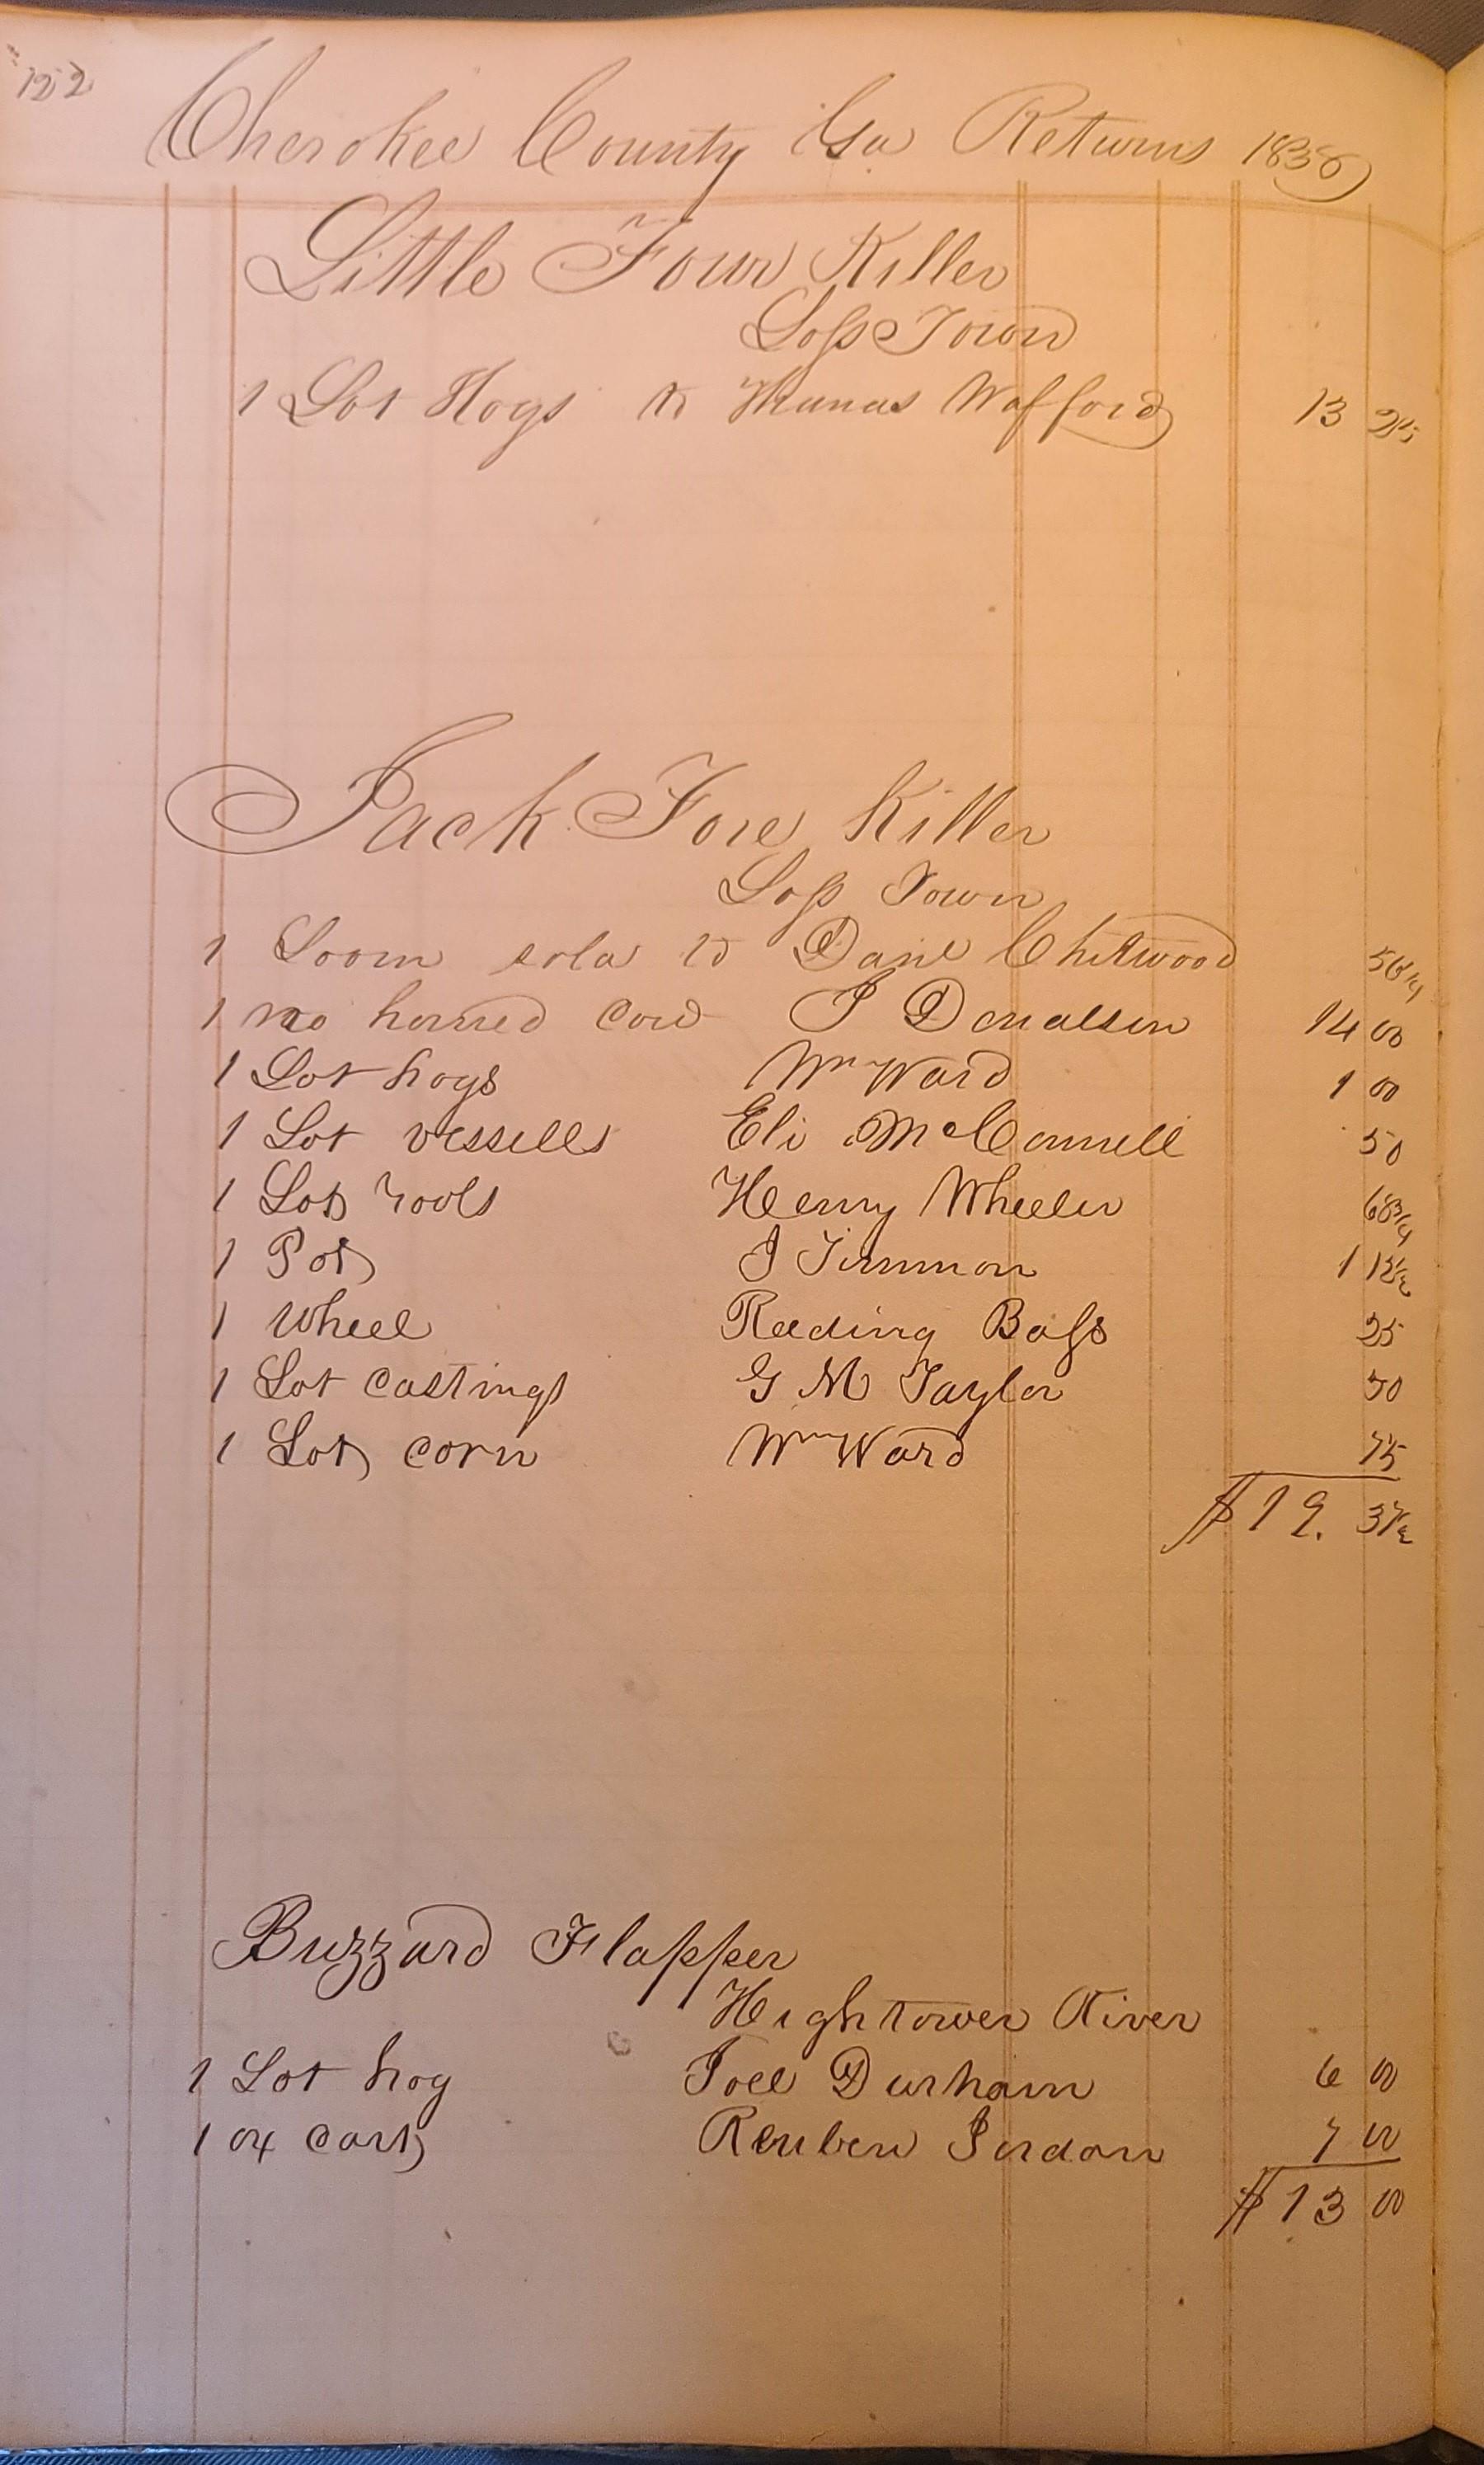 122
Cherokee County Ga Returns 1838
Little Four Killer
Loss Town
1 Lot Hogs to Thomas Wafford 13 25
Jack Fore Killer
Loss Town
1 Loom sold to Danl Chitwood 56 1/4
1 no horned Cow J Donalson 14 00
1 Lot hogs Wm Ward 1 00
1 Lot vessells Eli McConnell 50
1 Lot Tools Henry Wheeler 68 3/4
1 Pot J Timmon 1 12 1/2
1 Wheel Reding Bass 25
1 Lot Castings G M Taylor 50
1 Lot corn Wm Ward 75
$19. 37 1/2
Buzzard Flapper
Hightower River
1 Lot hog Joel Durham 6 00
1 ox Cart Reuben Jordan 7 00
$13 00